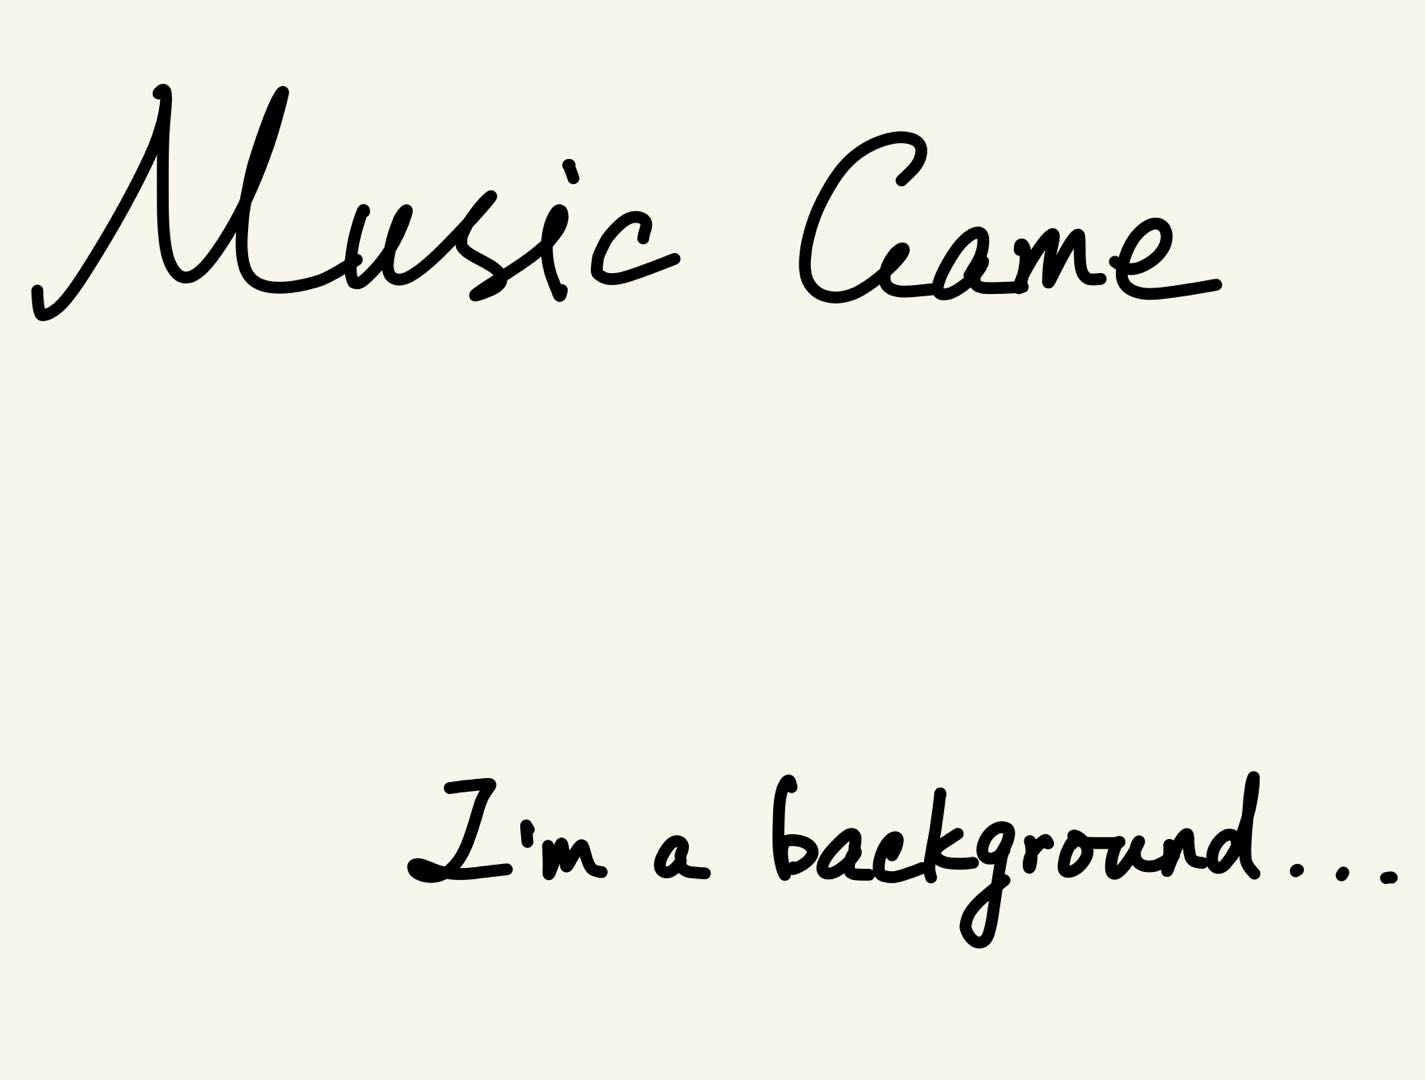 Music Game
I'm a background...